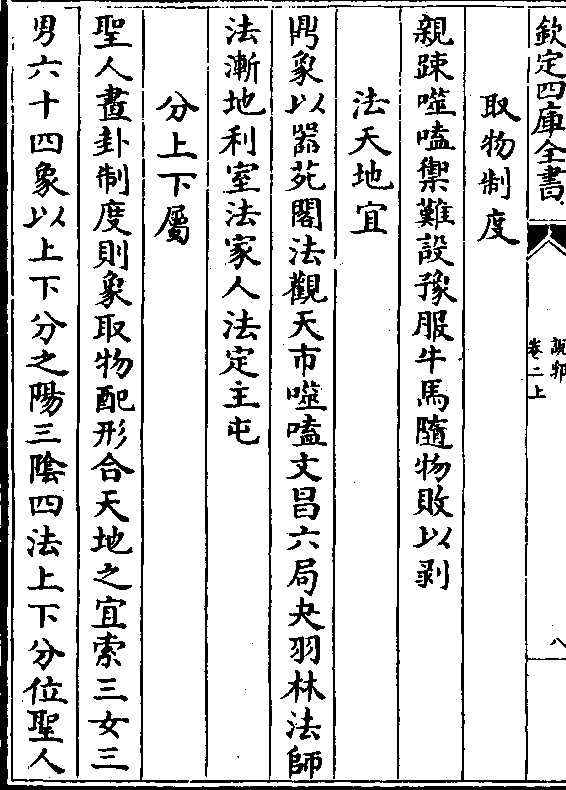 欽定四庫全書
說郛
卷二上
八
取物制度
親踈噬嗑禦難設豫服牛馬隨物敗以剥
法天地宜
鼎象以器苑閣法觀天市噬嗑文昌六局夬羽林法師
法漸地利室法家人法定主屯
分上下屬
聖人畫卦制度則象取物配形合天地之宜索三女三
男六十四象以上下分之陽三陰四法上下分位聖人